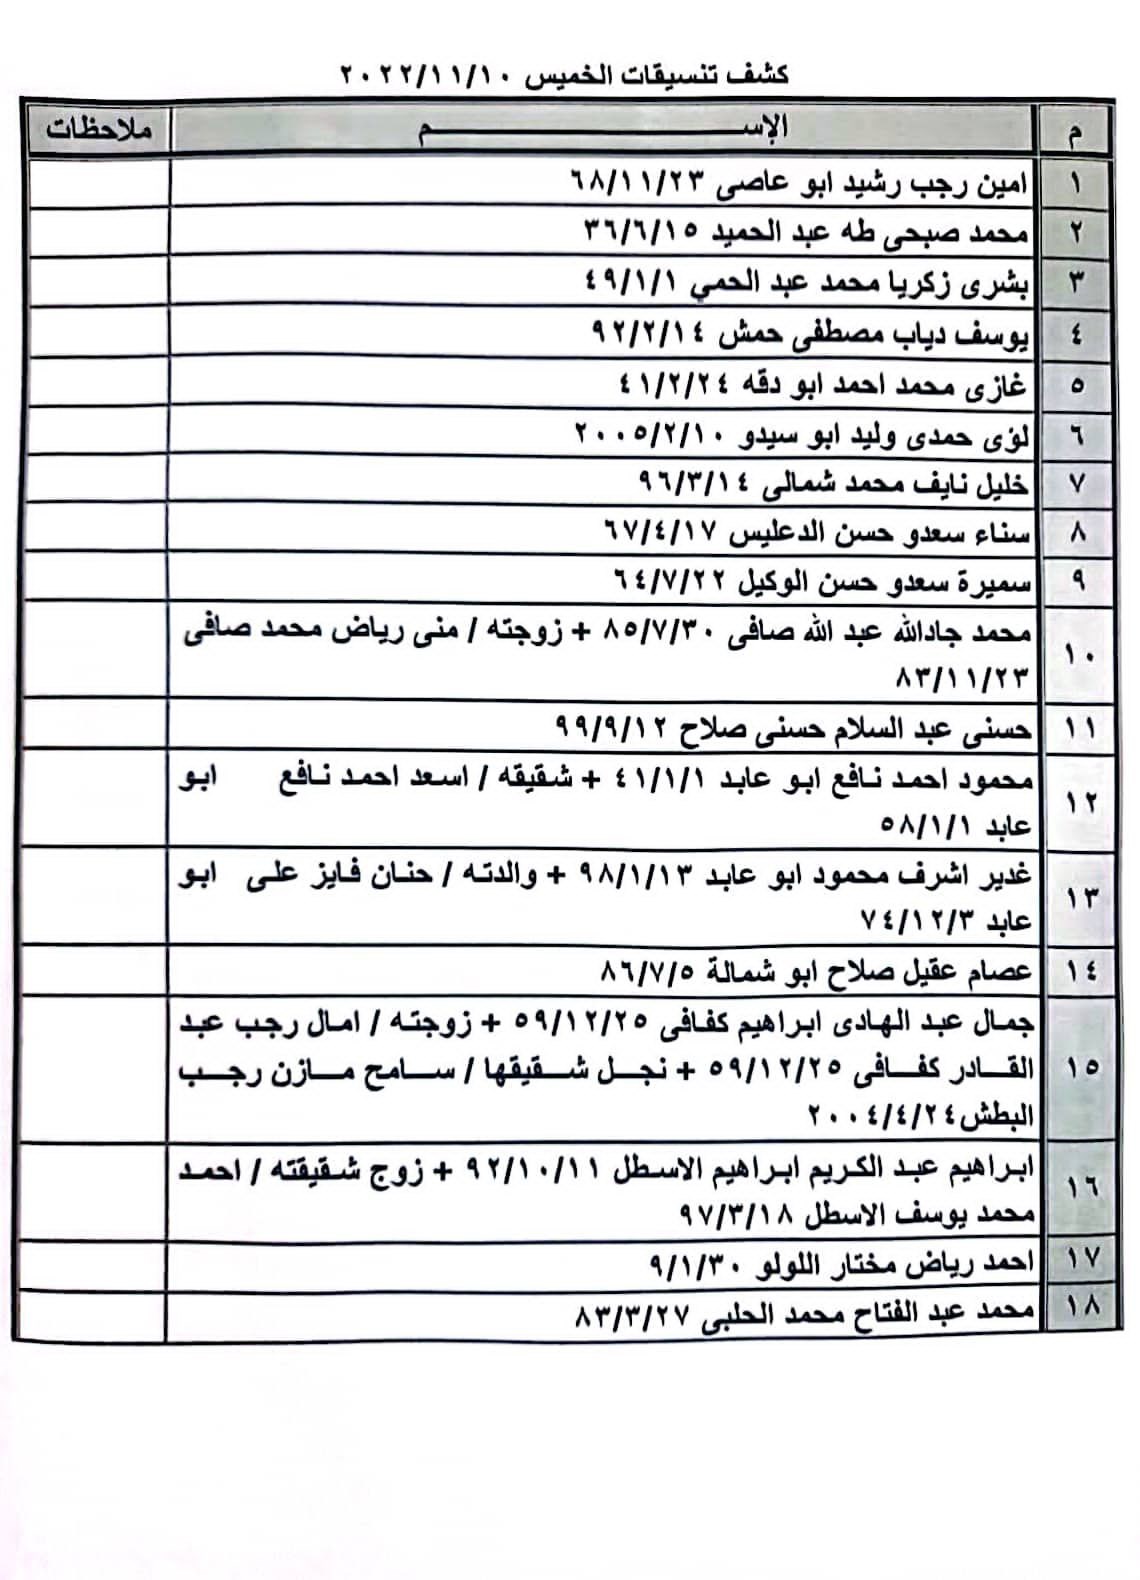 كشف تنسيقات الخميس ٢٠٢٢/١١/١٠
م الإســـــــــم ملاحظات
١ امين رجب رشيد ابو عاصى ٦٨/١١/٢٣
٢ محمد صبحى طه عبد الحميد ٣٦/٦/١٥
٣ بشرى زكريا محمد عبد الحمي ٤٩/١/١
٤ يوسف دياب مصطفى حمش ٩٢/٢/١٤
٥ غازى محمد احمد ابو دقه ٤١/٢/٢٤
٦ لؤى حمدى وليد ابو سيدو ٢٠٠٥/٢/١٠
٧ خليل نايف محمد شمالى ٩٦/٣/١٤
٨ سناء سعدو حسن الدعليس ٦٧/٤/١٧
٩ سميرة سعدو حسن الوكيل ٦٤/٧/٢٢
١٠ محمد جادالله عبد الله صافى ٨٥/٧/٣٠ + زوجته / منى رياض محمد صافى
٨٣/١١/٢٣
١١ حسنى عبد السلام حسنى صلاح ٩٩/٩/١٢
١٢ محمود احمد نافع ابو عابد ٤١/١/١ + شقيقه / اسعد احمد نافع ابو
عابد ٥٨/١/١
١٣ غدير اشرف محمود ابو عابد ٩٨/١/١٣ + والدته / حنان فايز على ابو
عابد ٧٤/١٢/٣
١٤ عصام عقيل صلاح ابو شمالة ٨٦/٧/٥
١٥ جمال عبد الهادى ابراهيم كفافى ٥٩/١٢/٢٥ + زوجته / امال رجب عبد
القادر كفافى ٥٩/١٢/٢٥ + نجل شقيقها / سامح مازن رجب
البطش ٢٠٠٤/٤/٢٤
١٦ ابراهيم عبد الكريم ابراهيم الاسطل ٩٢/١٠/١١ + زوج شقيقته / احمد
محمد يوسف الاسطل ٩٧/٣/١٨
١٧ احمد رياض مختار اللولو ٩/١/٣٠
١٨ محمد عبد الفتاح محمد الحلبى ٨٣/٣/٢٧